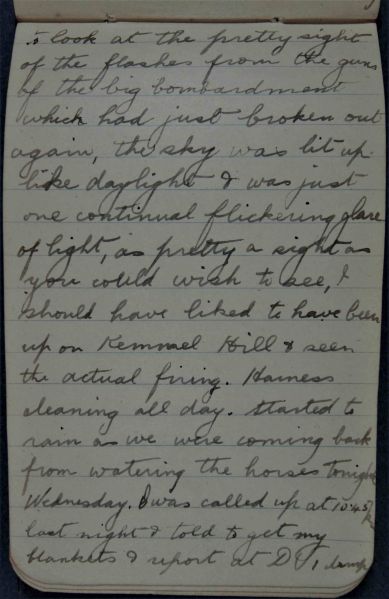 to look at the pretty sight
of the flashes from the guns
of the big bombardment
which had just broken out
again, the sky was lit up
like daylight & was just
one continual flickering glare
of light, as pretty a sight as
you could wish to see, I
should have liked to have been
up on Kemmel Hill & seen
the actual firing. Harness
cleaning all day. Started to
rain as we were coming back
from watering the horses tonight
Wednesday. I was called up at 10.45
last night & told to get my
blankets & report at D 1 dump